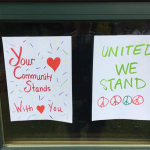 Your
Community
Stands
With You
UNITED
WE
STAND